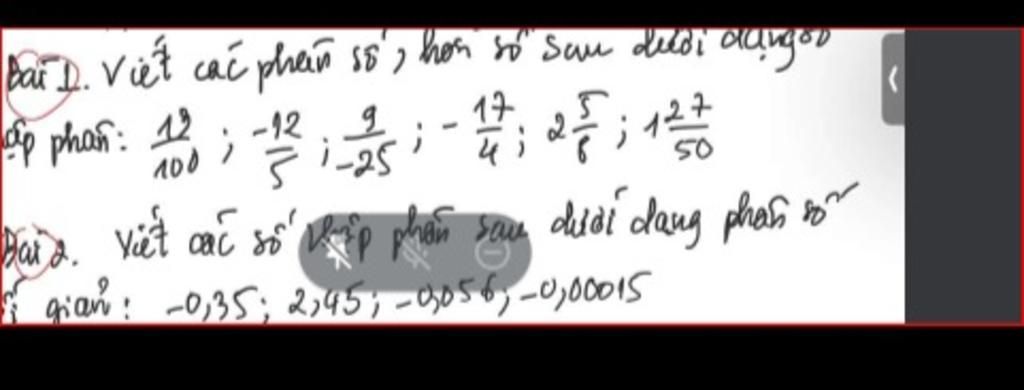 Bài 1. Viết các phân số, hỗn số sau dưới dạng số
ập phân: 19/100 ; -12/5 ; 9/-25 ; -17/4 ; 2 5/8 ; 1 27/50
Bài 2. Viết các số thập phân sau dưới dạng phân số
giản: -0,35; 2,45; -0,056; -0,00015